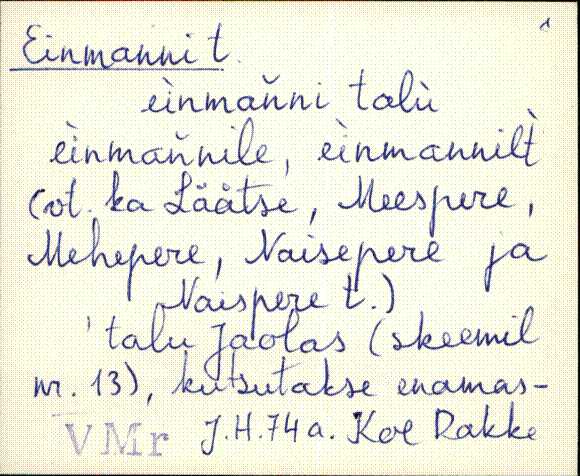 1
Einmanni t.
èinmaňni talù
èinmaňnile, èinmannilt̀
(vt. ka Läätse, Meespere,
Mehepere, Naisepere ja
Naispere t.)
'talu Jaolas (skeemil
nr. 13), kutsutakse enamas-
VMr J.H.74a. Koe Rakke